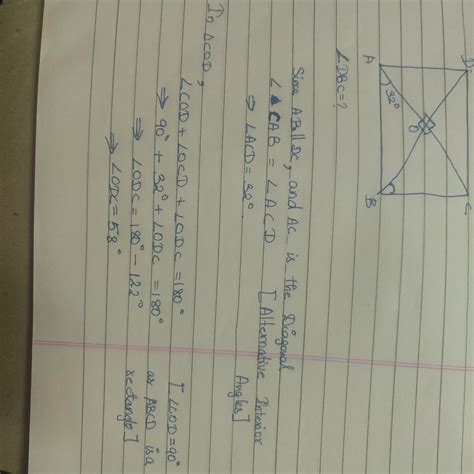 A
D
32°
O
B
C
∠DBC=?
Since AB||DC, and AC is the Diagonal
∠CAB = ∠ACD [Alternative Interior
Angles]
⇒ ∠ACD = 32°
In ΔCOD,
∠COD + ∠OCD + ∠ODC = 180°
⇒ 90° + 32° + ∠ODC = 180° [∠COD = 90°
as ABCD is a
rectangle]
⇒ ∠ODC = 180° - 122°
⇒ ∠ODC = 58°